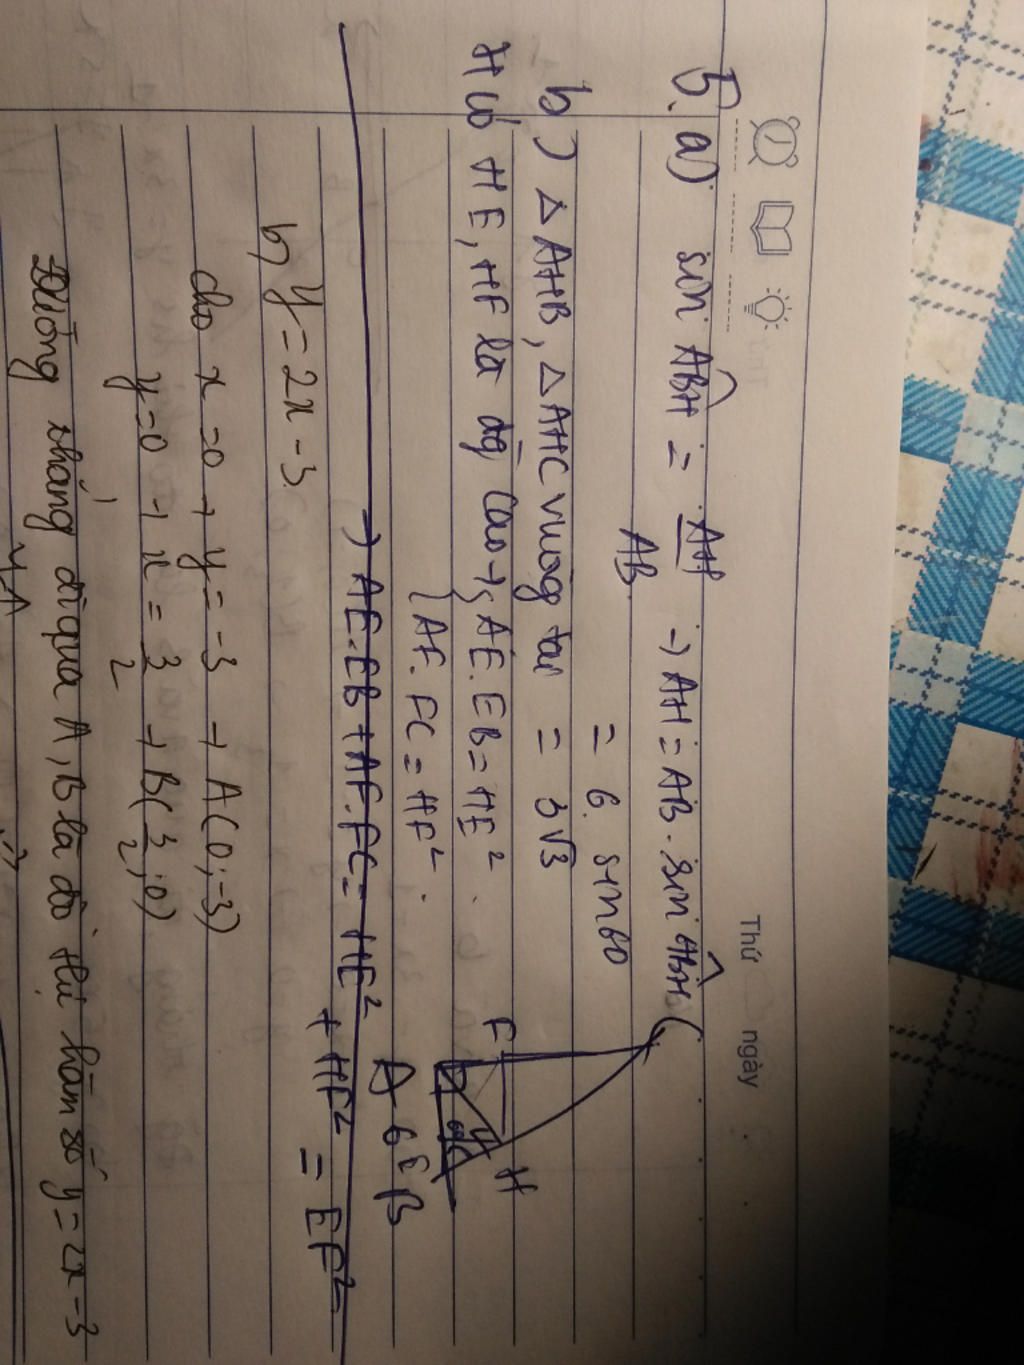 Thứ ngày
5. a) sin ABH = AH/AB → AH = AB . sin ABH
= 6. sin60
= 3√3
b) △ AHB, △ AHC vuog tại
H có HE, HF là đg cao → { AE.EB = HE²
{ AF.FC = HF².
F H
A 6 E B
→ AE.EB + AF.FC = HE²
+ HF² = EF²
b, y = 2x - 3.
cho x = 0 → y = -3 → A(0;-3)
y = 0 → x = 3/2 → B(3/2;0)
Đường thẳng đi qua A, B là đồ thị hàm số y = 2x - 3
y